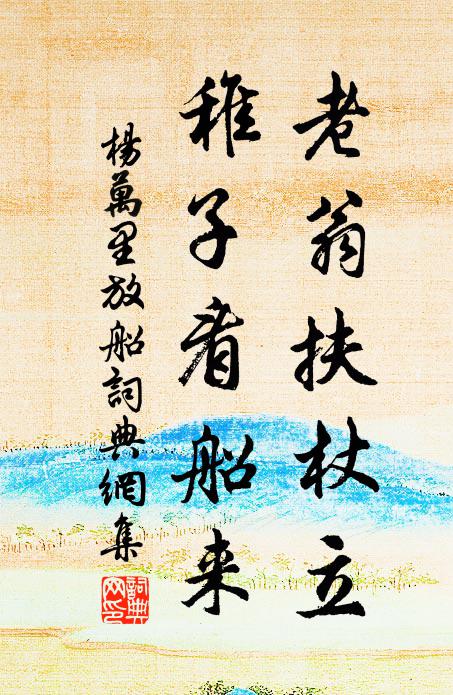 老翁扶杖立
稚子看船来
楊萬里放船詞典網集
詞典网印